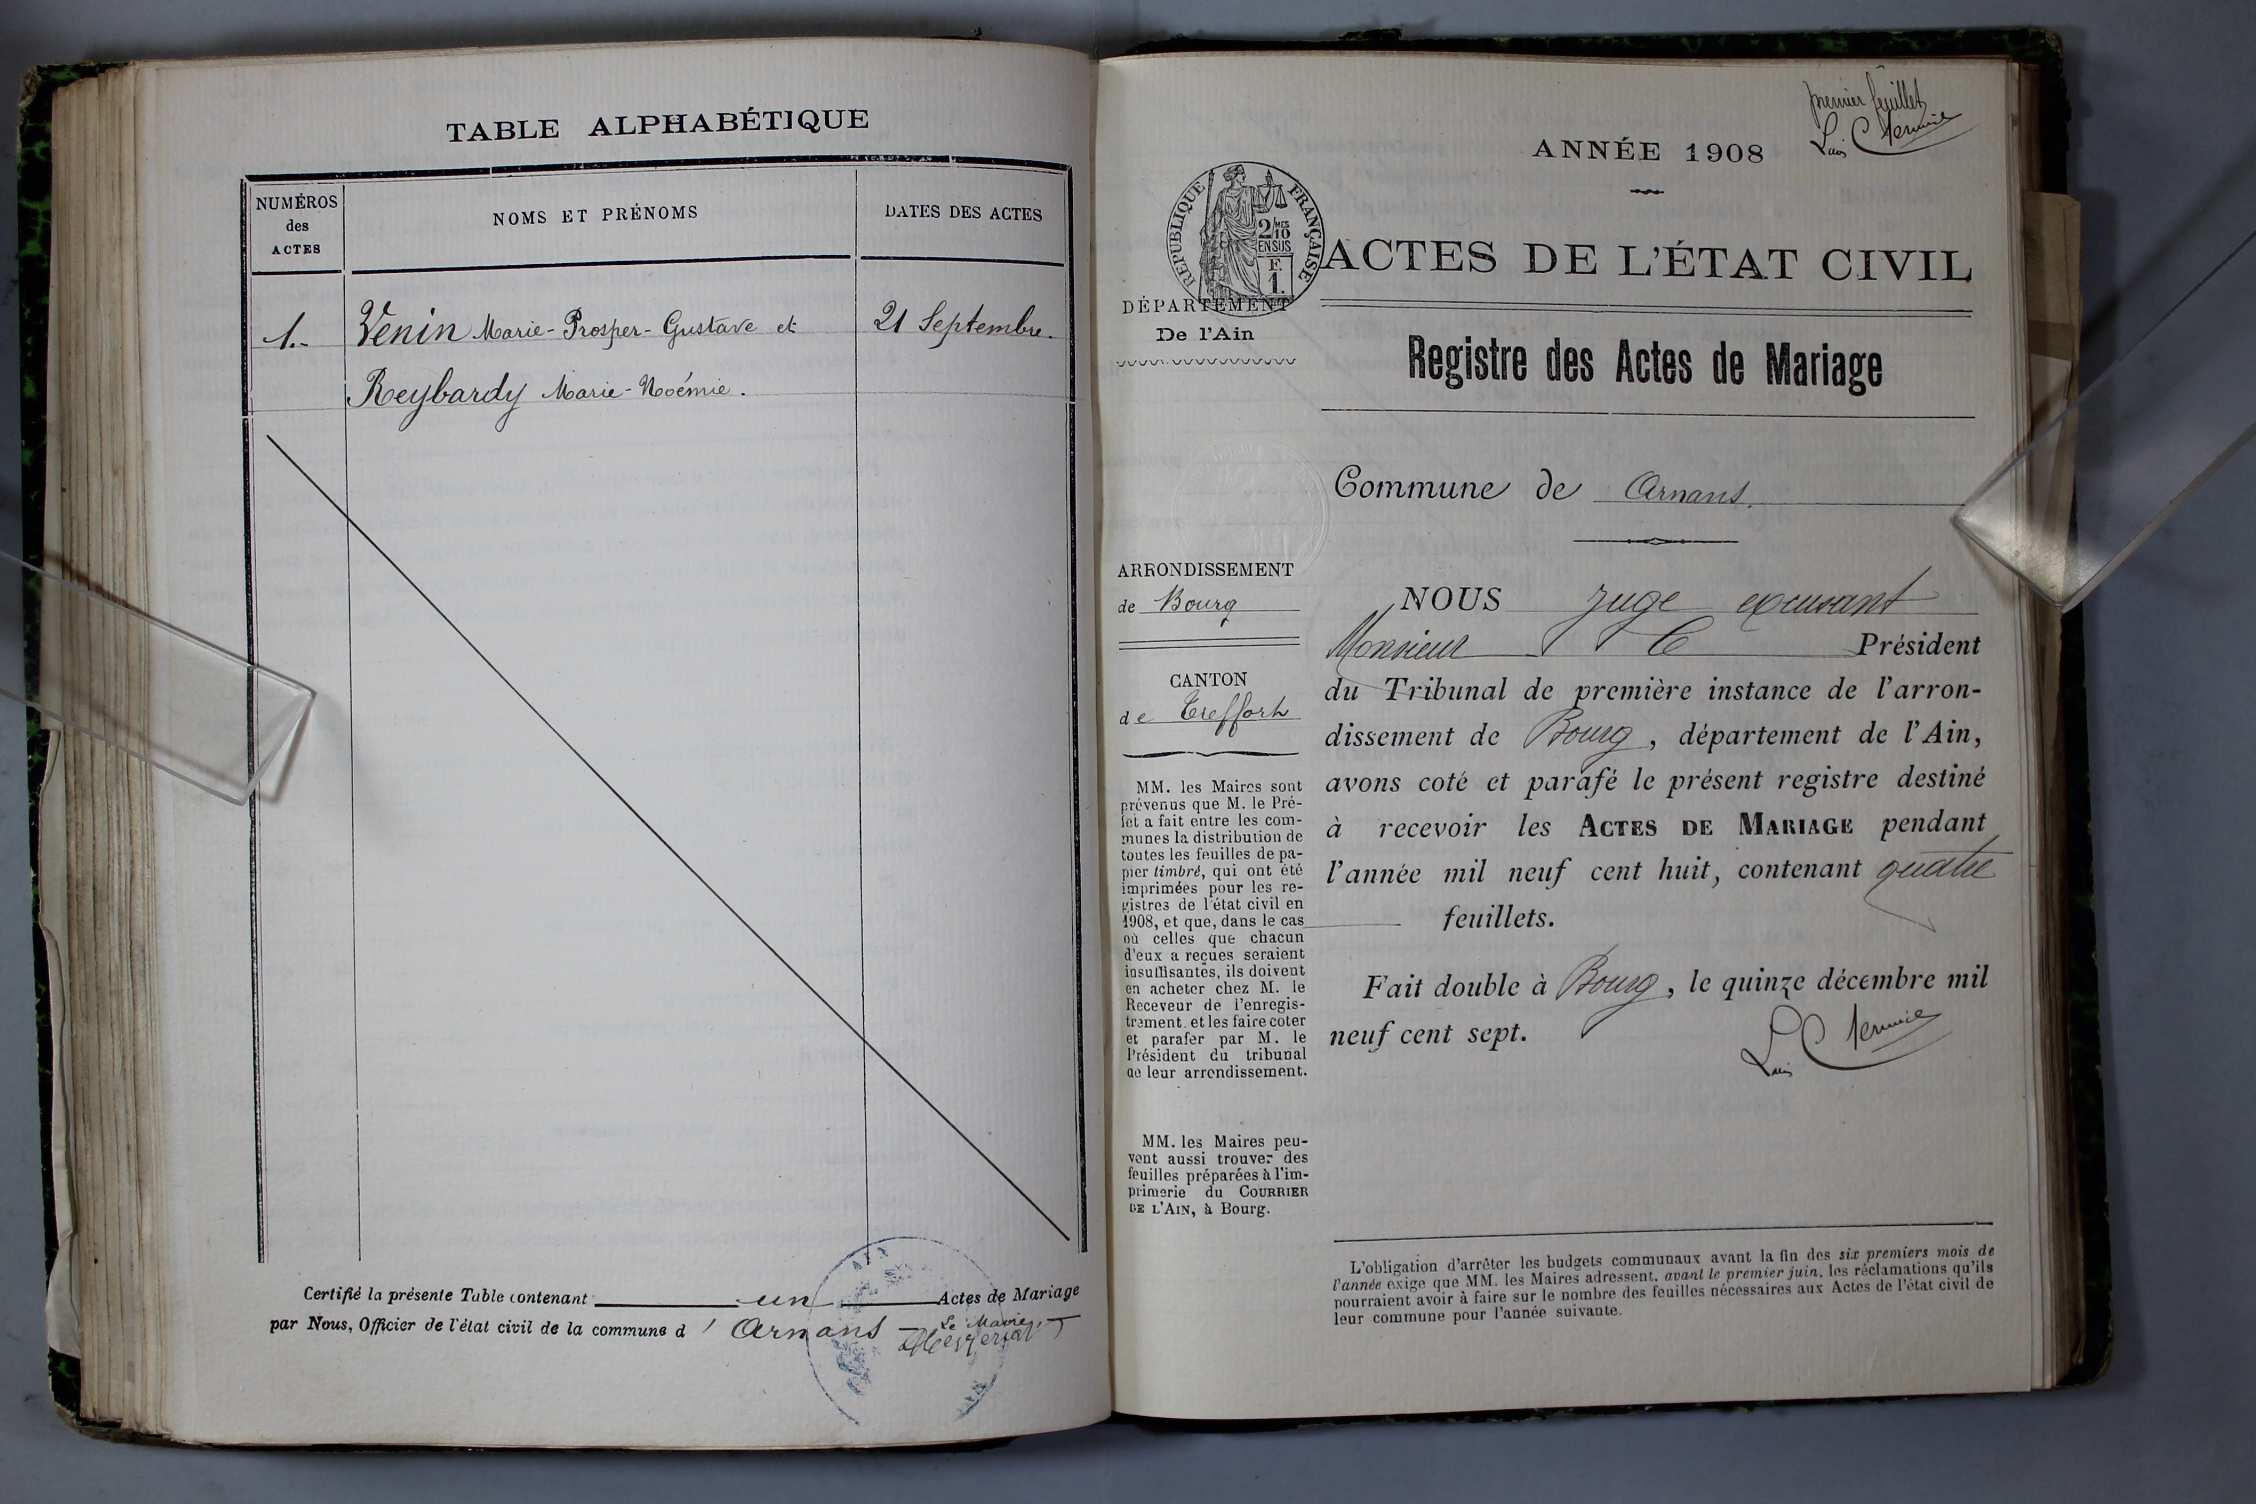 TABLE ALPHABÉTIQUE
NUMÉROS
des
ACTES
NOMS ET PRÉNOMS
DATES DES ACTES
1.- Venin Marie-Prosper-Gustave et 21 Septembre.
Reybardy Marie-Noémie.
Certifié la présente Table contenant un Actes de Mariage
par Nous, Officier de l'état civil de la commune d' Arnans
Le Maire,
premier feuillet
ANNÉE 1908
RÉPUBLIQUE FRANÇAISE
2/10 MES
EN SUS
F.
1.
ACTES DE L'ÉTAT CIVIL
DÉPARTEMENT
De l'Ain
Registre des Actes de Mariage
Commune de Arnans.
ARRONDISSEMENT
de Bourg
CANTON
de Treffort
MM. les Maires sont
prévenus que M. le Pré-
fet a fait entre les com-
munes la distribution de
toutes les feuilles de pa-
pier timbré, qui ont été
imprimées pour les re-
gistres de l'état civil en
1908, et que, dans le cas
où celles que chacun
d'eux a reçues seraient
insuffisantes, ils doivent
en acheter chez M. le
Receveur de l'enregis-
trement. et les faire coter
et parafer par M. le
Président du tribunal
de leur arrondissement.
MM. les Maires peu-
vent aussi trouver des
feuilles préparées à l'im-
primerie du COURRIER
DE L'AIN, à Bourg.
NOUS juge excusant
Monsieur le Président
du Tribunal de première instance de l'arron-
dissement de Bourg, département de l'Ain,
avons coté et parafé le présent registre destiné
à recevoir les ACTES DE MARIAGE pendant
l'année mil neuf cent huit, contenant quatre
feuillets.
Fait double à Bourg, le quinze décembre mil
neuf cent sept.
L'obligation d'arrêter les budgets communaux avant la fin des six premiers mois de
l'année exige que MM. les Maires adressent, avant le premier juin, les réclamations qu'ils
pourraient avoir à faire sur le nombre des feuilles nécessaires aux Actes de l'état civil de
leur commune pour l'année suivante.